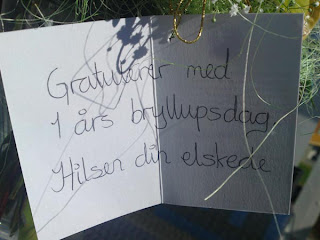 Gratulerer med
1 års bryllupsdag
Hilsen din elskede